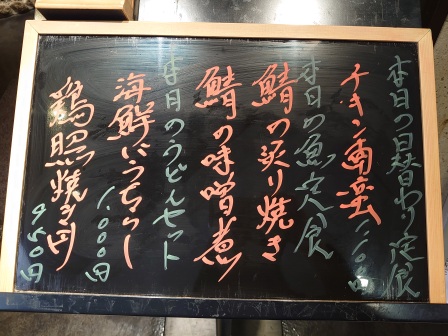 本日の日替わり定食
チキン南蛮
本日の魚定食
鯖の炙り焼き
鯖の味噌煮
本日のうどんセット
海鮮ばらちらし
1,000円
鶏照焼き丼
950円